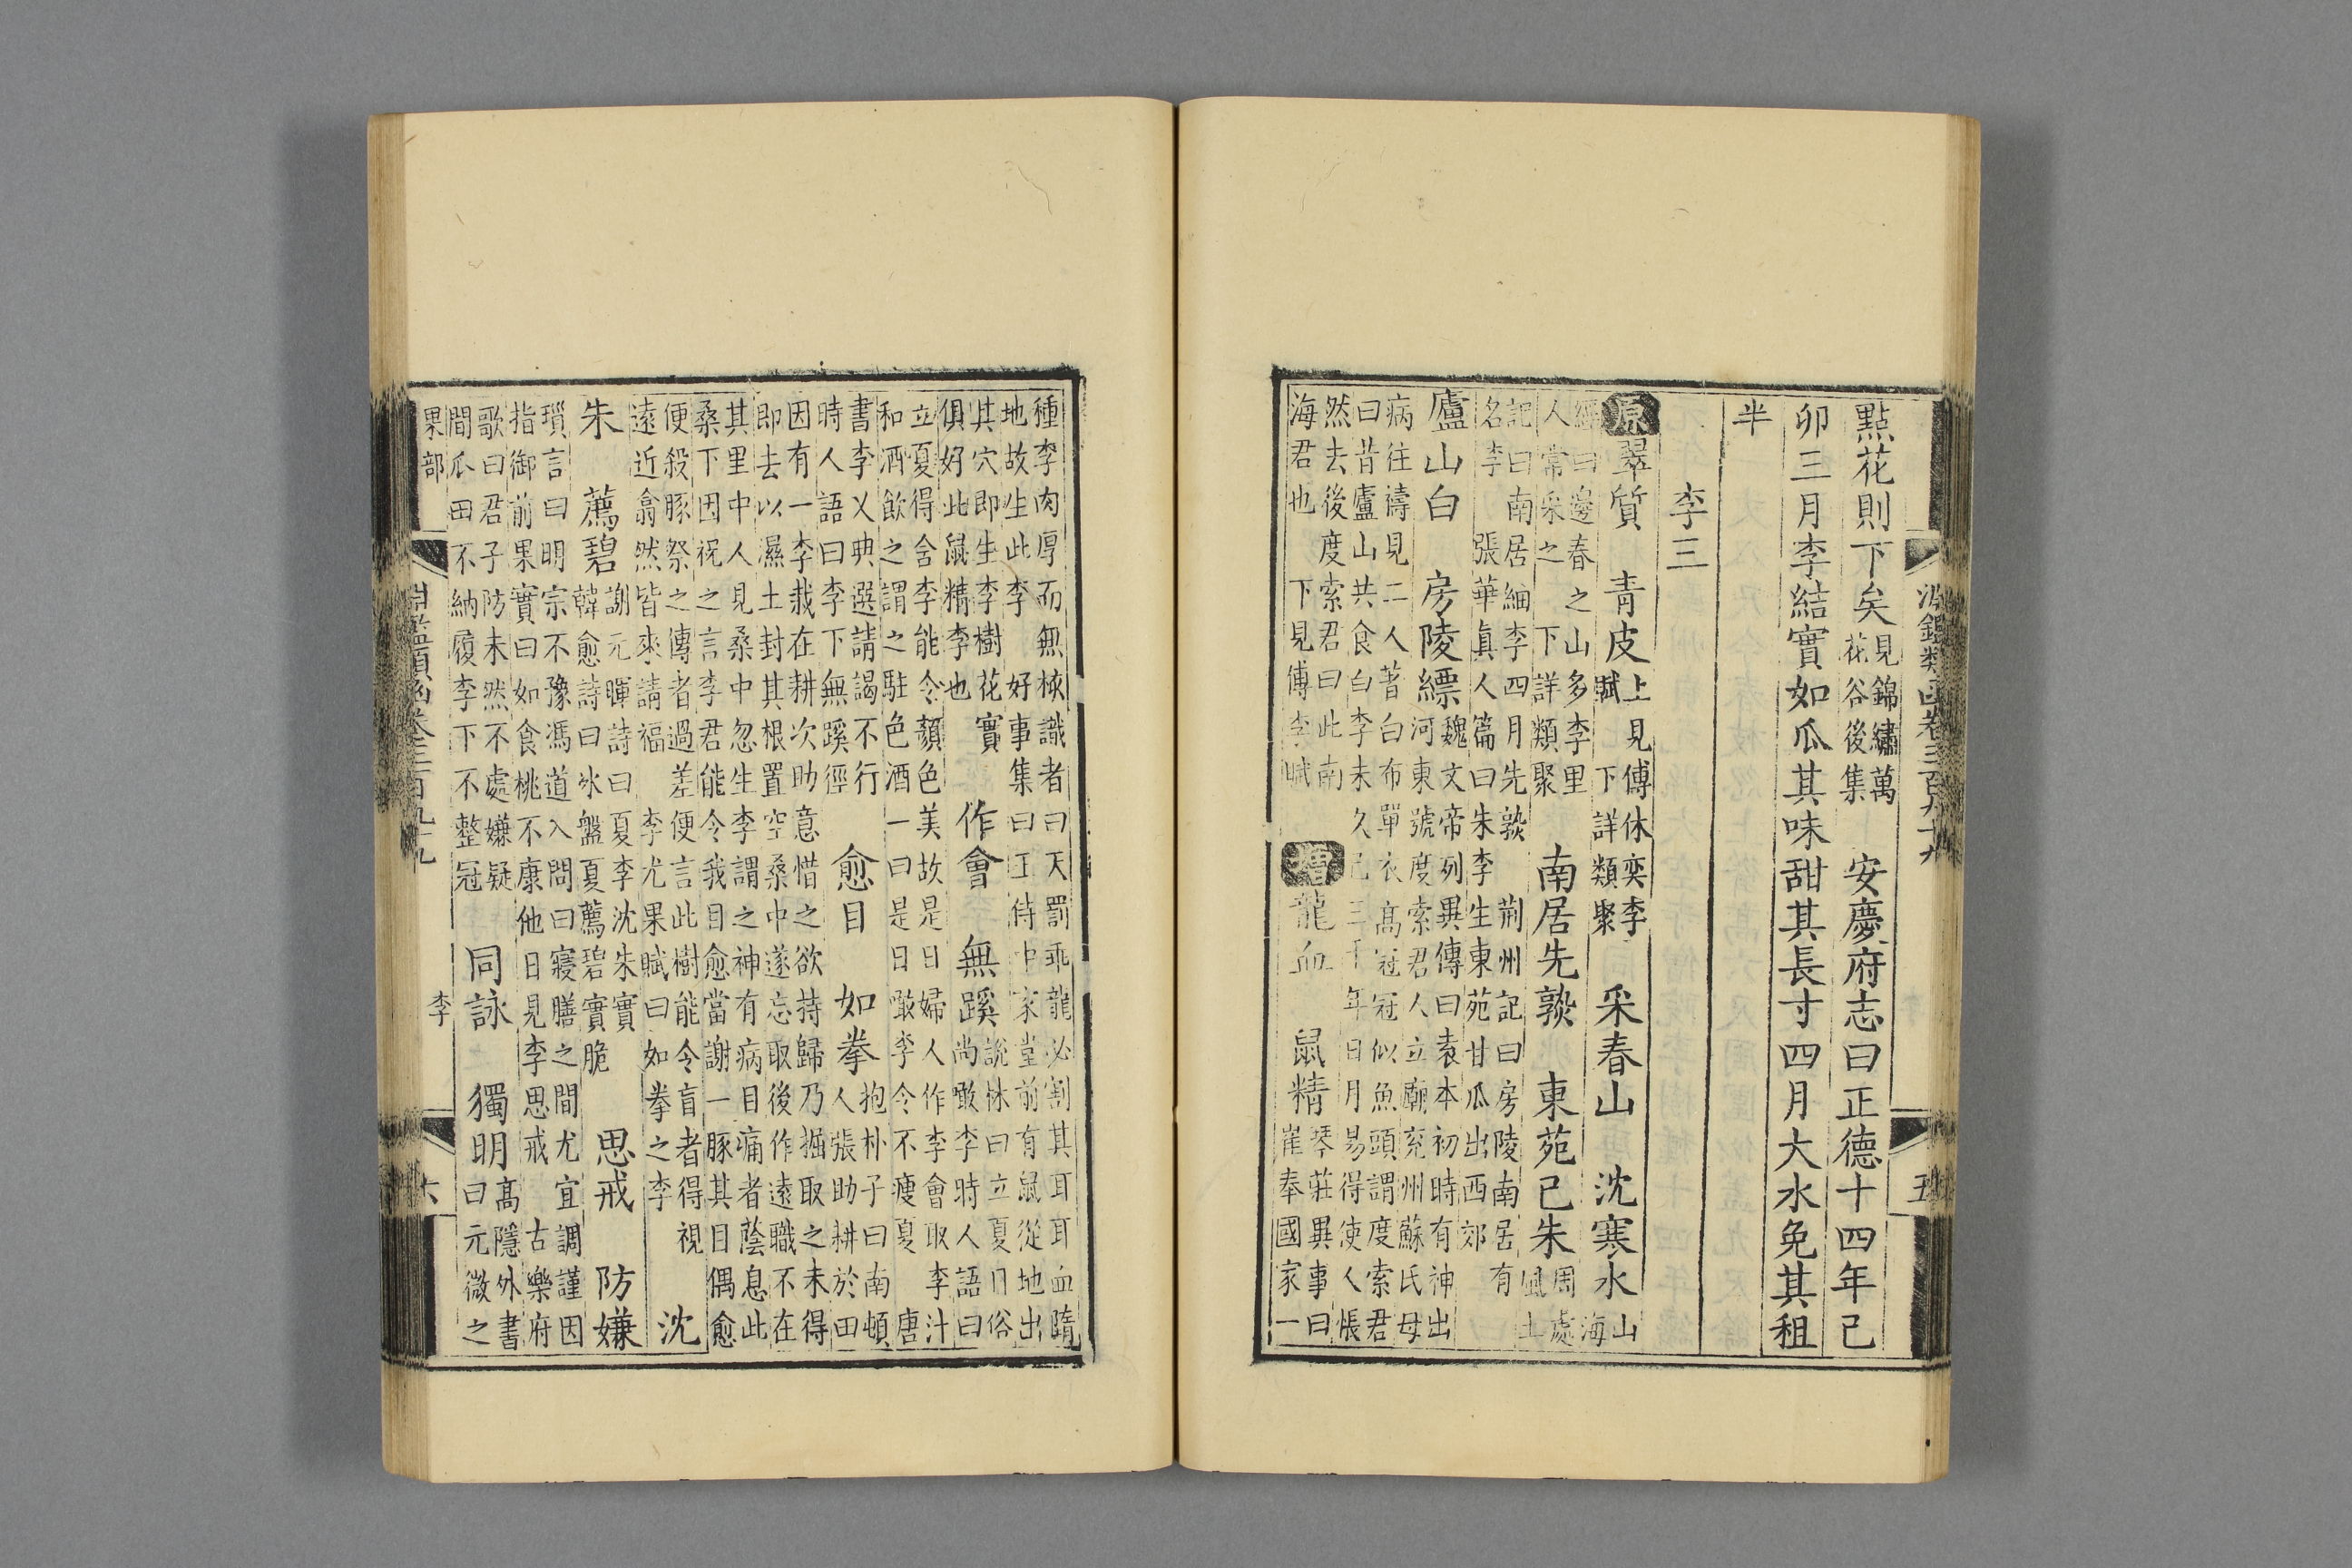 點花則下矣見錦繡萬花谷後集 安慶府志曰正德十四年已
卯三月李結實如瓜其味甜其長寸四月大水免其租
半
李三
原翠質 青皮上見傅休奕李賦下詳類聚 采春山 沈寒水山海
經曰邊春之山多李里人常采之下詳類聚 南居先熟 東苑已朱周處風土
記曰南居細李四月先熟名李 張華眞人篇曰朱李生東苑甘瓜出西郊 荆州記曰房陵南居有
廬山白 房陵縹魏文帝列異傳曰袁本初時有神出河東號度索君人立廟兖州蘇氏母
病往禱見二人著白布單衣髙冠冠似魚頭謂度索君曰昔廬山共食白李未久已三千年日月易得使人悵
然去後度索君曰此南海君也 下見傅李賦 增龍血 鼠精琴莊異事曰崔奉國家一
種李肉厚而無核識者曰天罰乖龍必割其耳耳血墮地故生此李 好事集曰王侍中家堂前有鼠從地出
其穴即生李樹花實俱好此鼠精李也 作會 無蹊說林曰立夏日俗尚啖李時人語曰
立夏得李能令顏色美故是日婦人作李會取李汁和酒飲之謂之駐色酒一曰是日啖李令不疰夏 唐
書李乂典選請謁不行時人語曰李下無蹊徑 愈目 如拳抱朴子曰南頓人張助耕於田
因有一李栽在耕次助意惜之欲持歸乃掘取之未得即去以濕土封其根置空桑中遂忘取後作遠職不在
其里中人見桑中忽生李謂之神有病目痛者蔭息此桑下因祝之言李君能令我目愈當謝一豚其目偶愈
便殺豚祭之傳者過差便言此樹能令盲者得視遠近翕然皆來請福 李尤果賦曰如拳之李 沈
朱 薦碧謝元暉詩曰夏李沈朱實韓愈詩曰冰盤夏薦碧實脆 思戒 防嫌
瑣言曰明宗不豫馮道入問曰寢膳之間尤宜調謹因指御前果實曰如食桃不康他日見李思戒 古樂府
歌曰君子防未然不處嫌疑間瓜田不納履李下不整冠 同詠 獨明髙隱外書曰元微之
果部 李 六